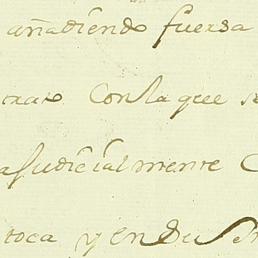 añadiendo fuersa
Con la que se
judicialmente
toca y en su